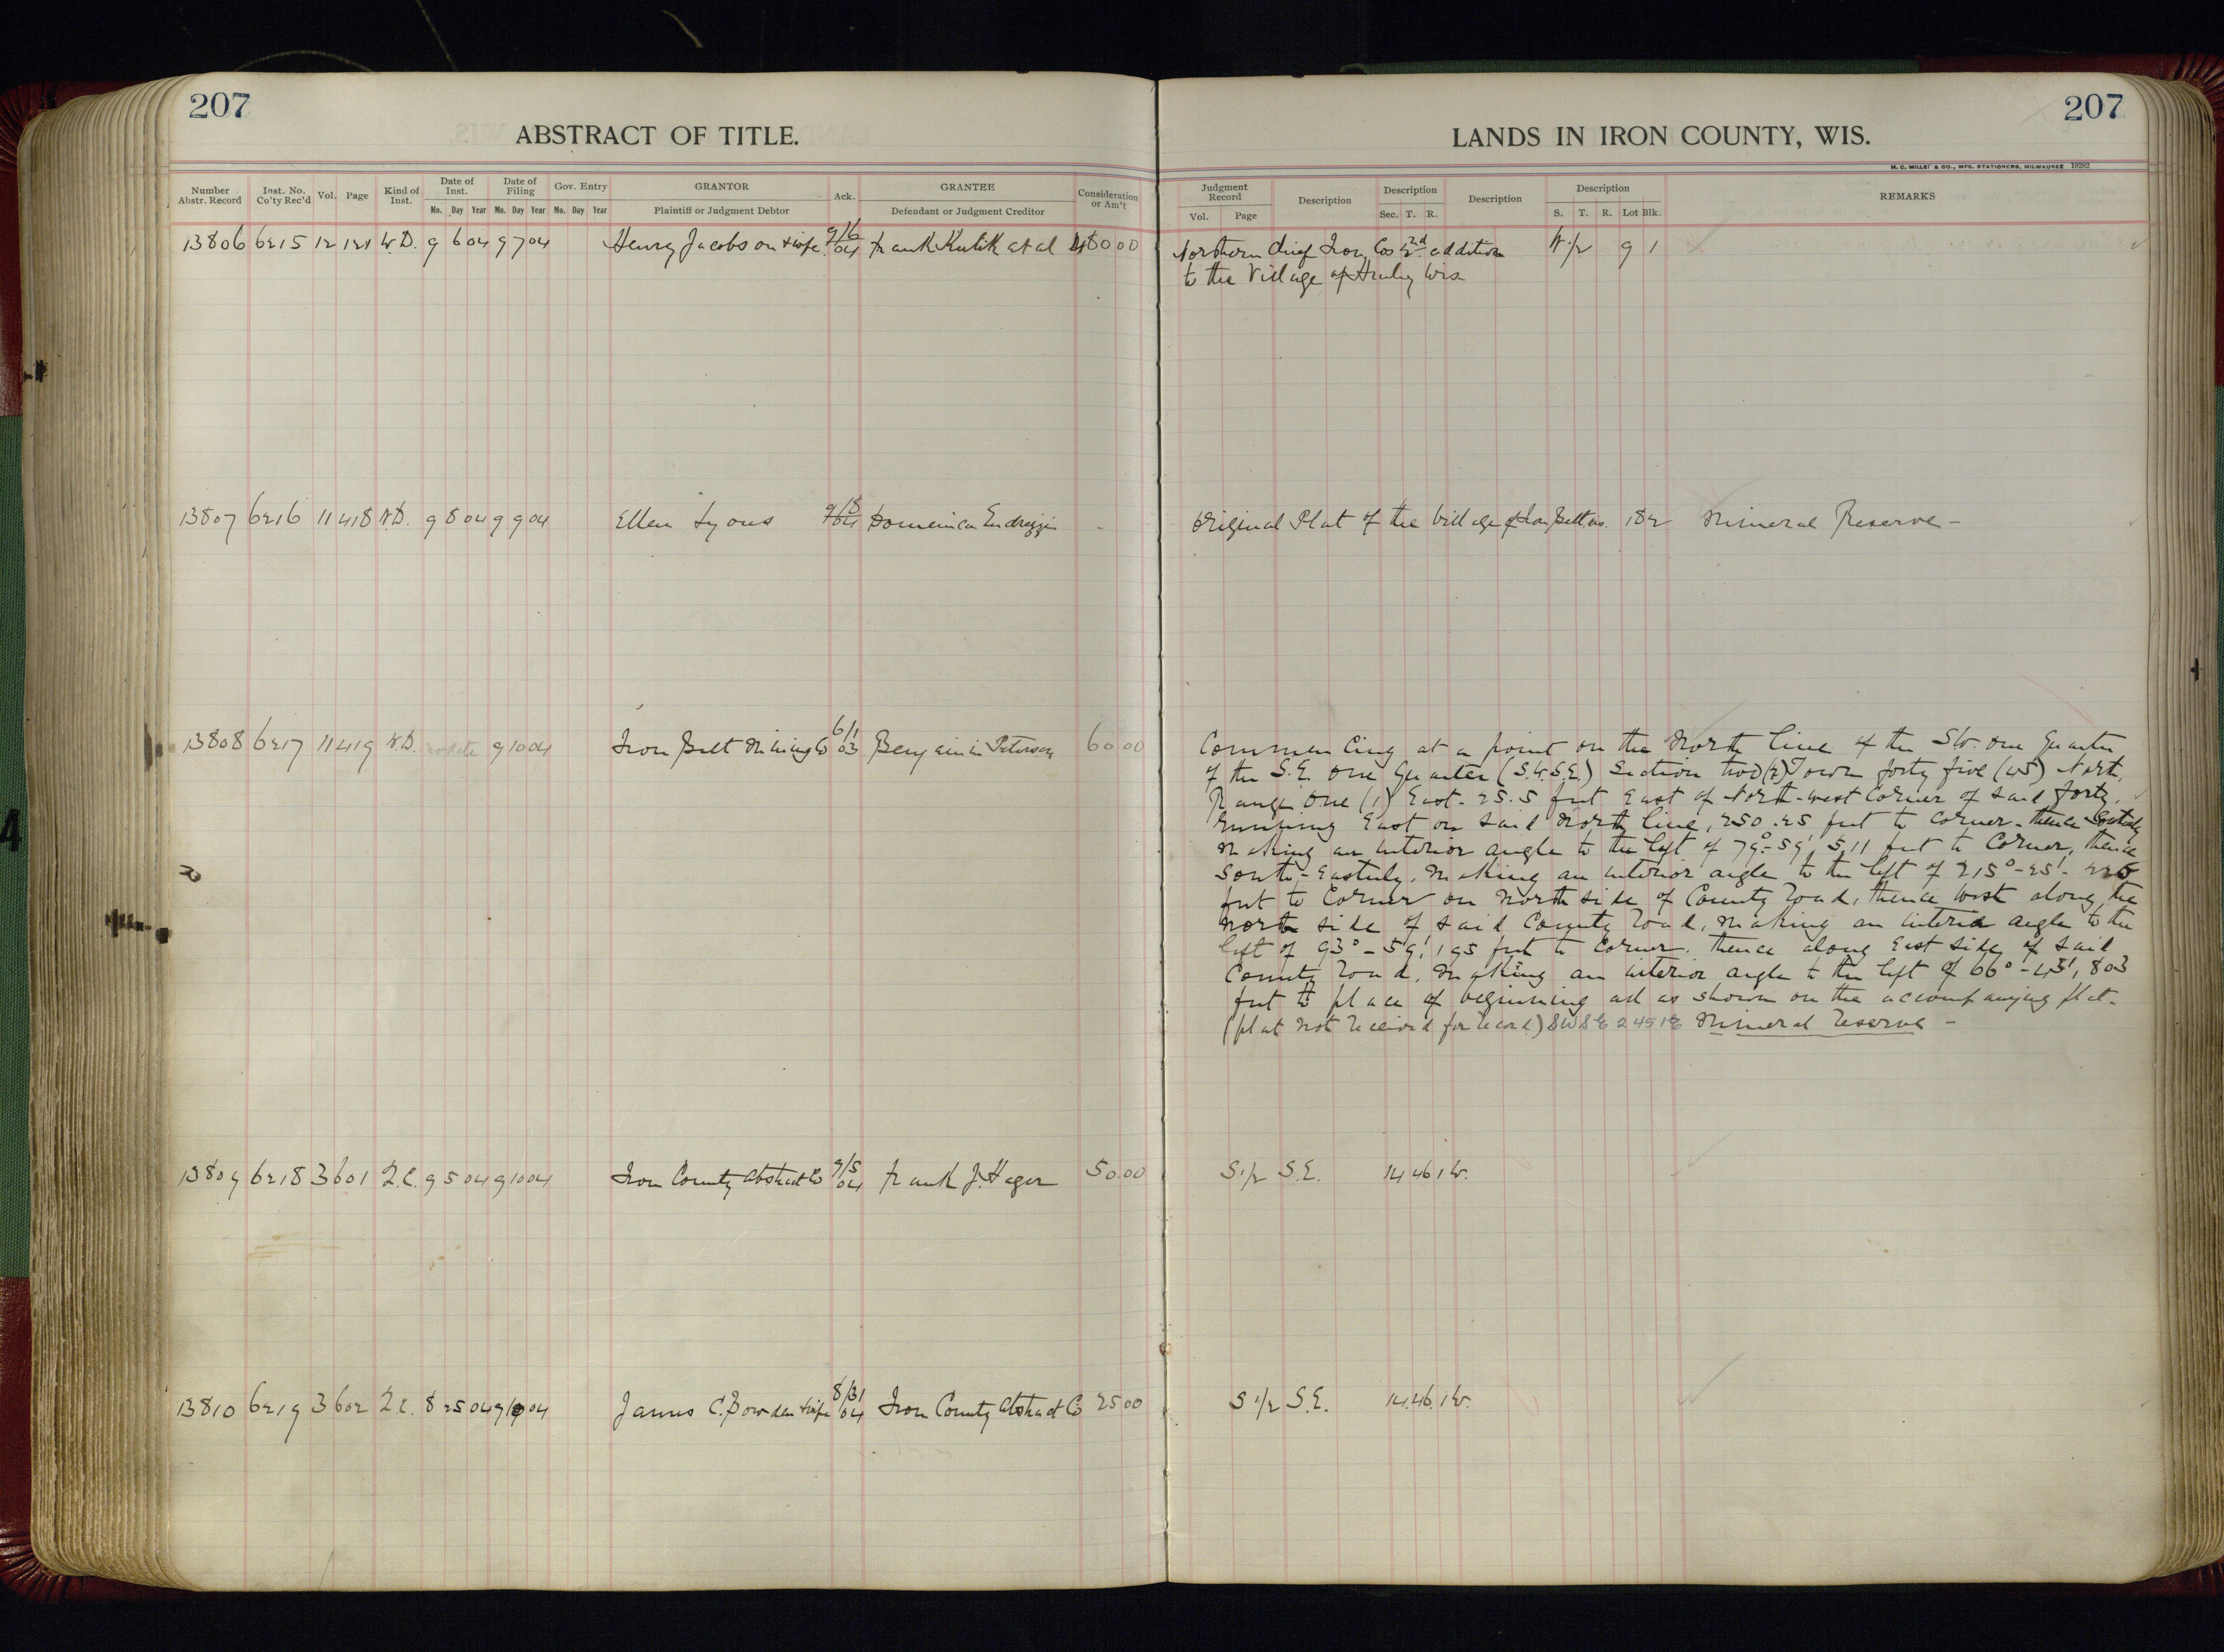 207
207
ABSTRACT OF TITLE.
LANDS IN IRON COUNTY, WIS.
H. C. MILLER & CO., MFG. STATIONERS, MILWAUKEE 19282
Number Abstr. Record Inst. No. Co'ty Rec'd Vol. Page Kind of Inst. Date of Inst. Mo. Day Year Date of Filing Mo. Day Year Gov. Entry Mo. Day Year GRANTOR Plaintiff or Judgment Debtor Ack. GRANTEE Defendant or Judgment Creditor Consideration or Am't
Judgment Record Vol. Page Description Description Sec. T. R. Description Description S. T. R. Lot Blk. REMARKS
13806 6215 12 121 W.D. 9 6 04 9 7 04 Henry Jacobson & wife 9/6 04 Frank Kutik et al 00 00 Northern Chief Iron Cos 2nd addition W 1/2 9 1
to the Village of Hurley Wis
13807 6216 11 418 W.D. 9 8 04 9 9 04 Ellen Lyons 9/8 04 Domenica Endrizzi - Original Plat of the Village of Iron Belt Wis. 18 2 Mineral Reserve -
13808 6217 11 419 W.D. no date 9 10 04 Iron Belt Mining Co 6/1 03 Benjamin Peterson 60 00 Commencing at a point on the North line of the SW. one Quarter
of the S.E. one Quarter (S.W.S.E.) Section two (2) Town forty five (45) North,
Range One (1) East - 25.5 feet East of North-west Corner of said forty,
running East on said North line, 250.25 feet to corner - thence
making an interior angle to the left of 79°-59', 511 feet to Corner, thence
South-Easterly, making an interior angle to the left of 215°-25'-
feet to Corner on North side of County road, thence West along the
North side of said County road, making an interior angle to the
left of 93°-59', 195 feet to Corner. thence along East side of said
County road, making an interior angle to the left of 66°-45', 803
feet to place of beginning all as shown on the accompanying plat-
(plat not received for record) SW SE 2 45 1E Mineral Reserve -
13809 6218 3 601 2.C. 9 5 04 9 10 04 Iron County Abstract Co 9/5 04 Frank J. Hager 50.00 S 1/2 S.E. 14 46 1 W.
13810 6219 3 602 2.C. 8 25 04 9 04 James C. Bowden & wife 8/31 04 Iron County Abstract Co 25 00 S 1/2 S.E. 14. 46. 1 W.